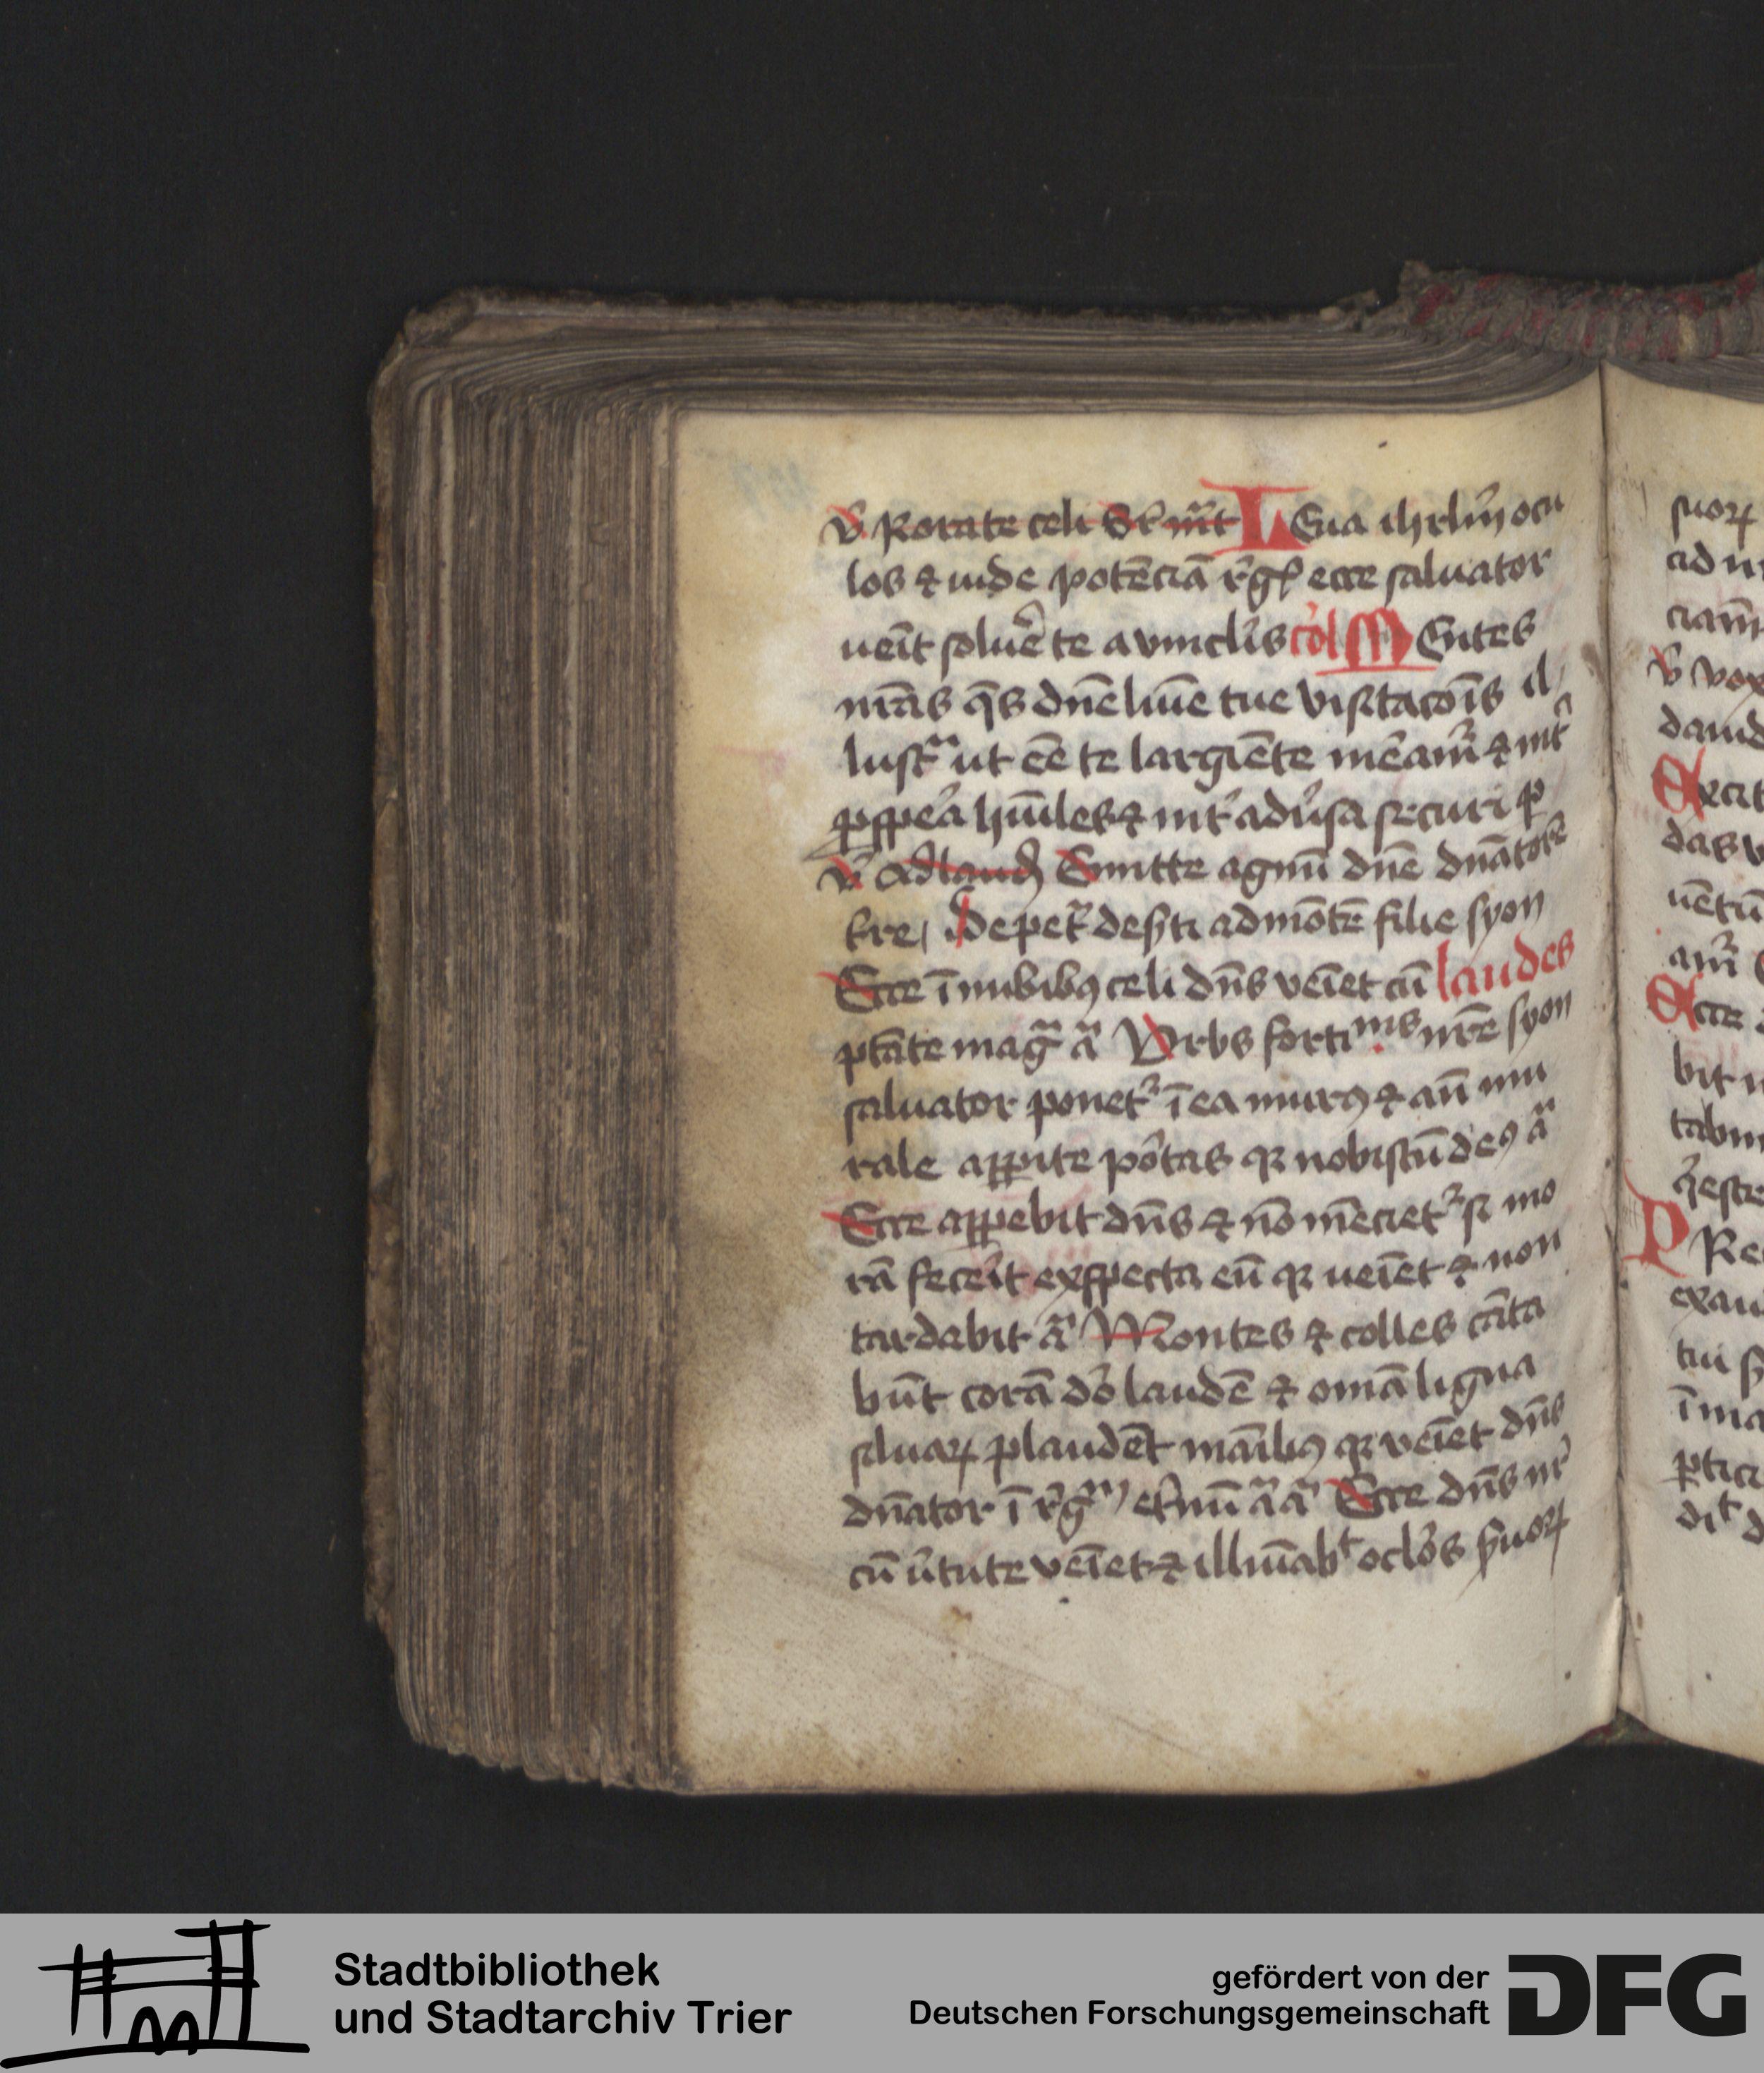 v̄ Rorate celi Sr̄ mͣt LEua ihrlm̄ ocu
los ⁊ uide potēciā rͤgꝭ ecce saluator
ueīt soluē te a vinclis col MEntes
nr̄as qs̄ dn̄e lum̄e tue visitacōis il
lustͣ ut eē te largiēte m̄eamͬ ⁊ int̄
ꝓspera hūiles ⁊ int̄ adūsa securi ꝑ
v̄ ad laud Emitte agnū dn̄e dn̄atorē
tre De petͣ desti ad mōtē filie syon
Ecce ī nubibꝰ celi dn̄s veīet cū laudes
ptāte magͣ aͣ Vrbs fortinis nr̄e syon
saluator ponetͬ ī ea murꝰ ⁊ an̄ mu
rale appite portas qꝛ nobiscū deꝰ aͣ
Ecce appebit dn̄s ⁊ nō mēcietͬ si mo
rā fecerit exspecta eū qꝛ ueīet ⁊ non
tardabit aͣ Montes ⁊ colles cāta
būt corā do laudē ⁊ om̄a ligna
siluaꝝ plaudēt maībꝰ qꝛ veīet dn̄s
dn̄ator ī rͤgͫ et̄nū aͣ aͣ Ecce dn̄s nr̄
cū v̄tute veīet ⁊ illuīabͭ oclos s̄uoꝝ
suoꝝ
ad
ciam
v̄ vox
dauid
Excit
das v
uētū
amͬ
Ecce
bit
tabū
PRe
exau
tui
ī ma
ꝑtici
diͭ d
Stadtbibliothek
und Stadtarchiv Trier
gefördert von der
Deutschen Forschungsgemeinschaft
DFG